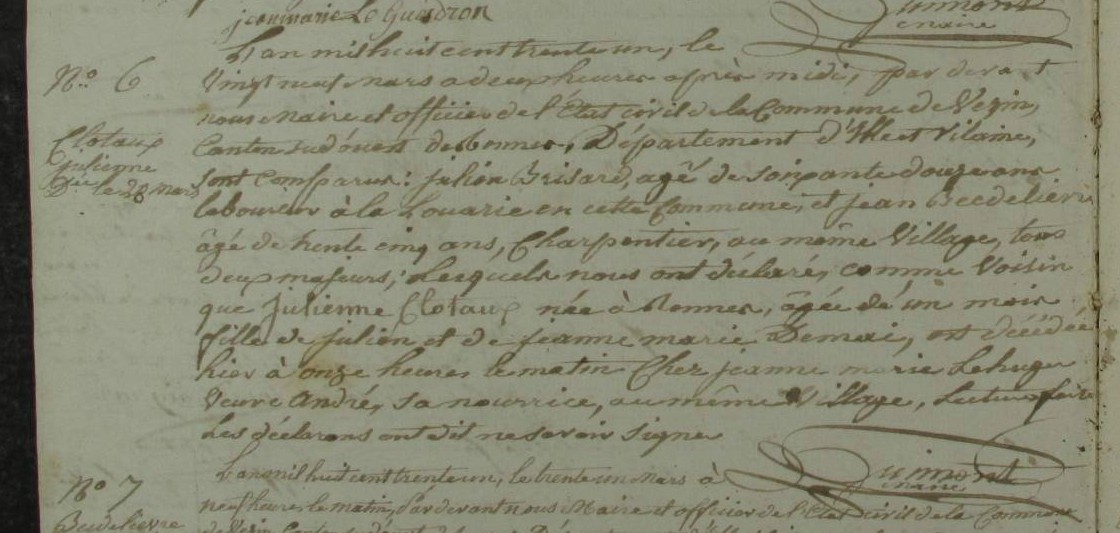 jean marie Le Guerdron
Guimont
maire
N.o 6
Clotaux
Julienne
Déc. le 28 mars
L'an mil huit cent trente un, le
vingt neuf mars a deux heures après midi, par devant
nous Maire et officier de l'Etat civil de la Commune de Vezin,
Canton sud'ouest de Rennes, Département d'Ille et Vilaine,
sont comparus: julien Brisard, agé de soixante douze ans
laboureur à la Louarie en cette Commune, et jean Becdelievre
âgé de trente cinq ans, Charpentier, au même Village, tous
deux majeurs; Lesquels nous ont déclaré, comme Voisin
que Julienne Clotaux née à Rennes, âgée d'un mois
fille de julien et de jeanne marie Demai, est décédée
hier à onze heures le matin Chez jeanne marie Lehuger
Veuve André, sa nourrice, au même Village, Lecture faite
Les déclarans ont dit ne savoir signer
Guimont
maire
N.o 7
Becdelievre
L'an mil huit cent trente un, le trente un Mars à
neuf heures le matin, Par devant nous Maire et officier de l'Etat civil de la Commune